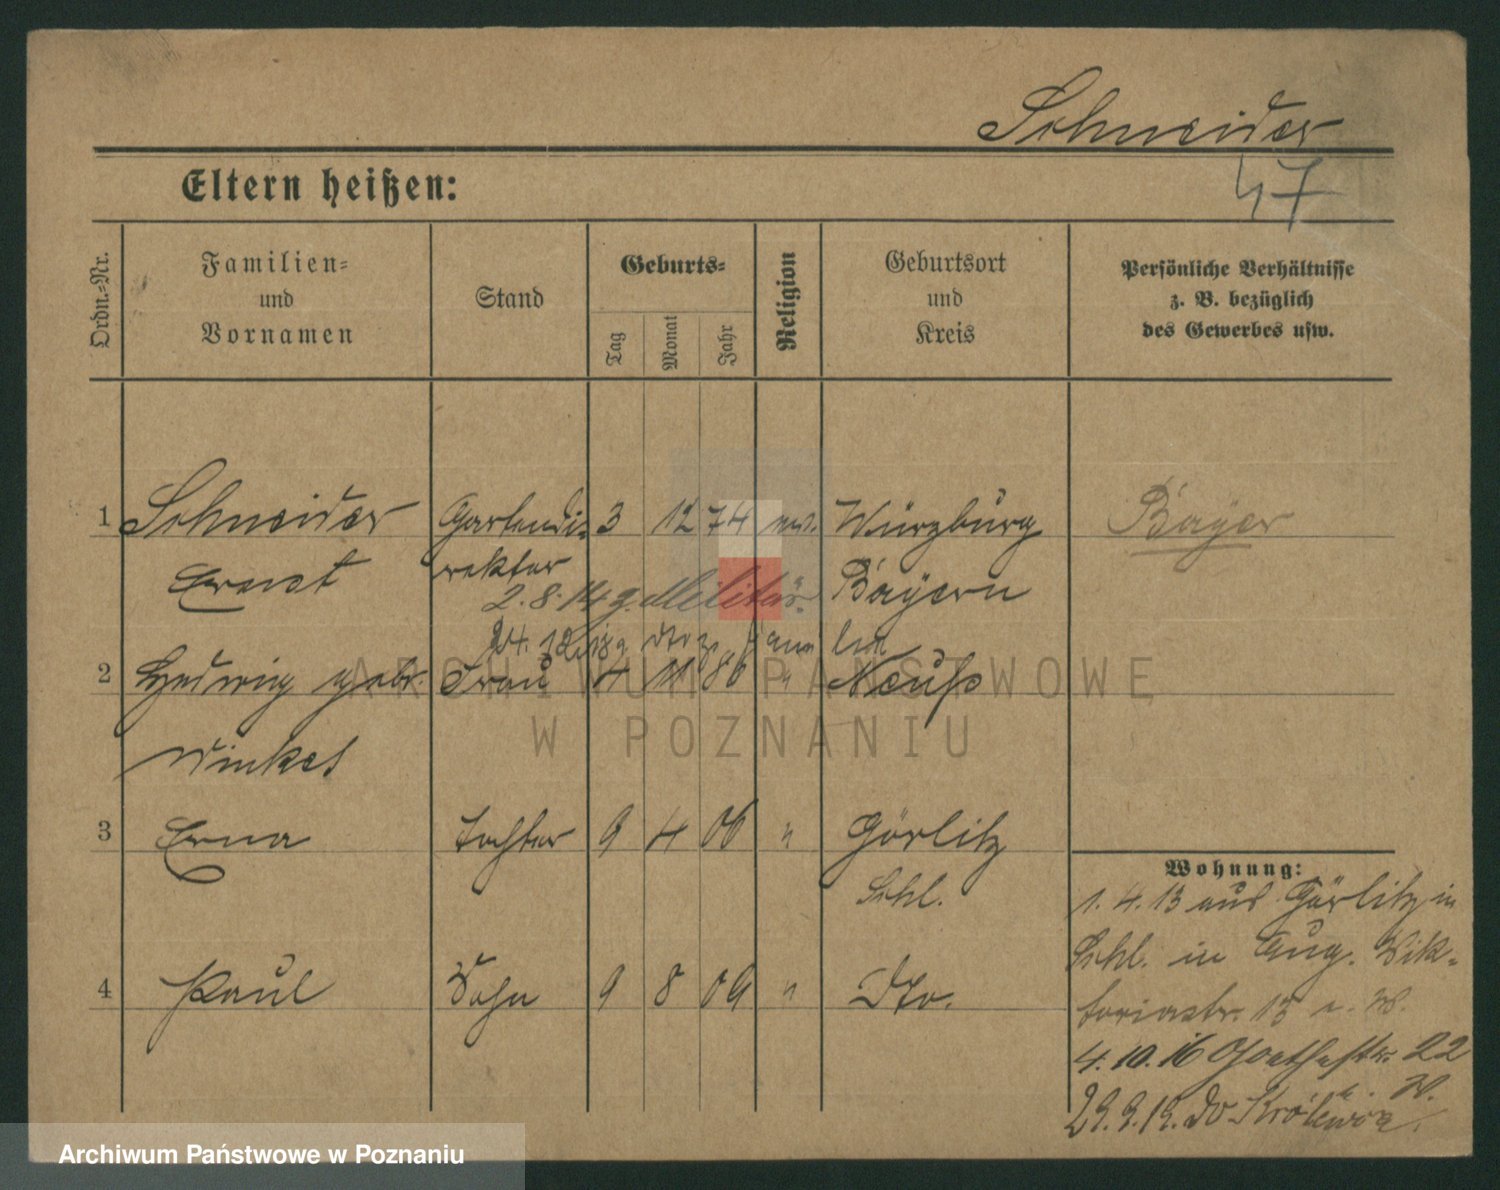 Schneider
47
Eltern heißen:
Ordn.-Nr.
Familien-
und
Vornamen
Stand
Geburts-
Tag
Monat
Jahr
Religion
Geburtsort
und
Kreis
Persönliche Verhältnisse
z. B. bezüglich
des Gewerbes usw.
1 Schneider Gartendi- 3 12 74 ev. Würzburg Bayer
Ernst rektor Bayern
2.8.14 z. Militär
24. 12. 18 von
2 Hedwig geb. Frau 4 11 86 " Neuß
Winkel
3 Erna Tochter 9 4 06 " Görlitz
Schl.
4 Paul Sohn 9 8 09 " Dto.
Wohnung:
1. 4. 13 aus Görlitz in
Schl. in Aug. Vik-
toriastr. 13 e. W.
4. 10. 16 Goethestr. 22
e. W.
29. 9. 19. do Królewska
ARCHIWUM PAŃSTWOWE
W POZNANIU
Archiwum Państwowe w Poznaniu